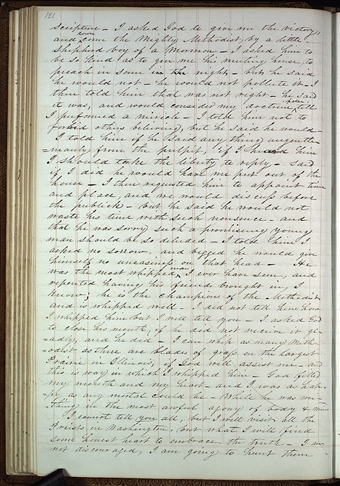 181
scripture - I asked God to give me the victory,
and ever the Mighty Methodist, by a little
shepherd boy of a Mormon - I asked him to
be so kind as to give me his meeting house, to
preach in some in the night - but he said
he would not - he would not pollute it - I
then told him that was not right - he said
it was, and would consider my doctrine, till
I performed a miracle - I told him not to
forbid others believing, but he said he would
I told him if he said any thing ungentle-
manly from the pulpit, if I heard him
I should take the liberty to reply - said
if I did he would have me put out of the
house - I then requested him to appoint time
and place and we would discuss before
the publick - but he said he would not
waste his time with such nonsense - and
that he was sorry such a promising young
man should be so deluded - I told him I
asked no sorrow, and begged he would give
himself no uneasiness on that head - He
was the most whipped man I ever have seen, and
repented having his friends brought in, I
know; he is the champion of the Methodists
and is whipped well - I did not tell him how
I whipped him but I will tell you - I asked God
to close his mouth, if he did not receive it gl-
adly, and he did - I can whip as many Meth-
odist as there are blades of grass on the largest
Prairie in Illinois, if God will assist me - and
this is way in which I whipped him - God filled
my mouth and my heart - and I was as hap-
py as any mortal could be - While he was wri-
thing in the most awful agony of body & mind
I cannot tell you all, but I will visit all the
Priests in Washington, but what I will find
some honest heart to embrace the truth - I am
not discouraged, I am going to hunt them